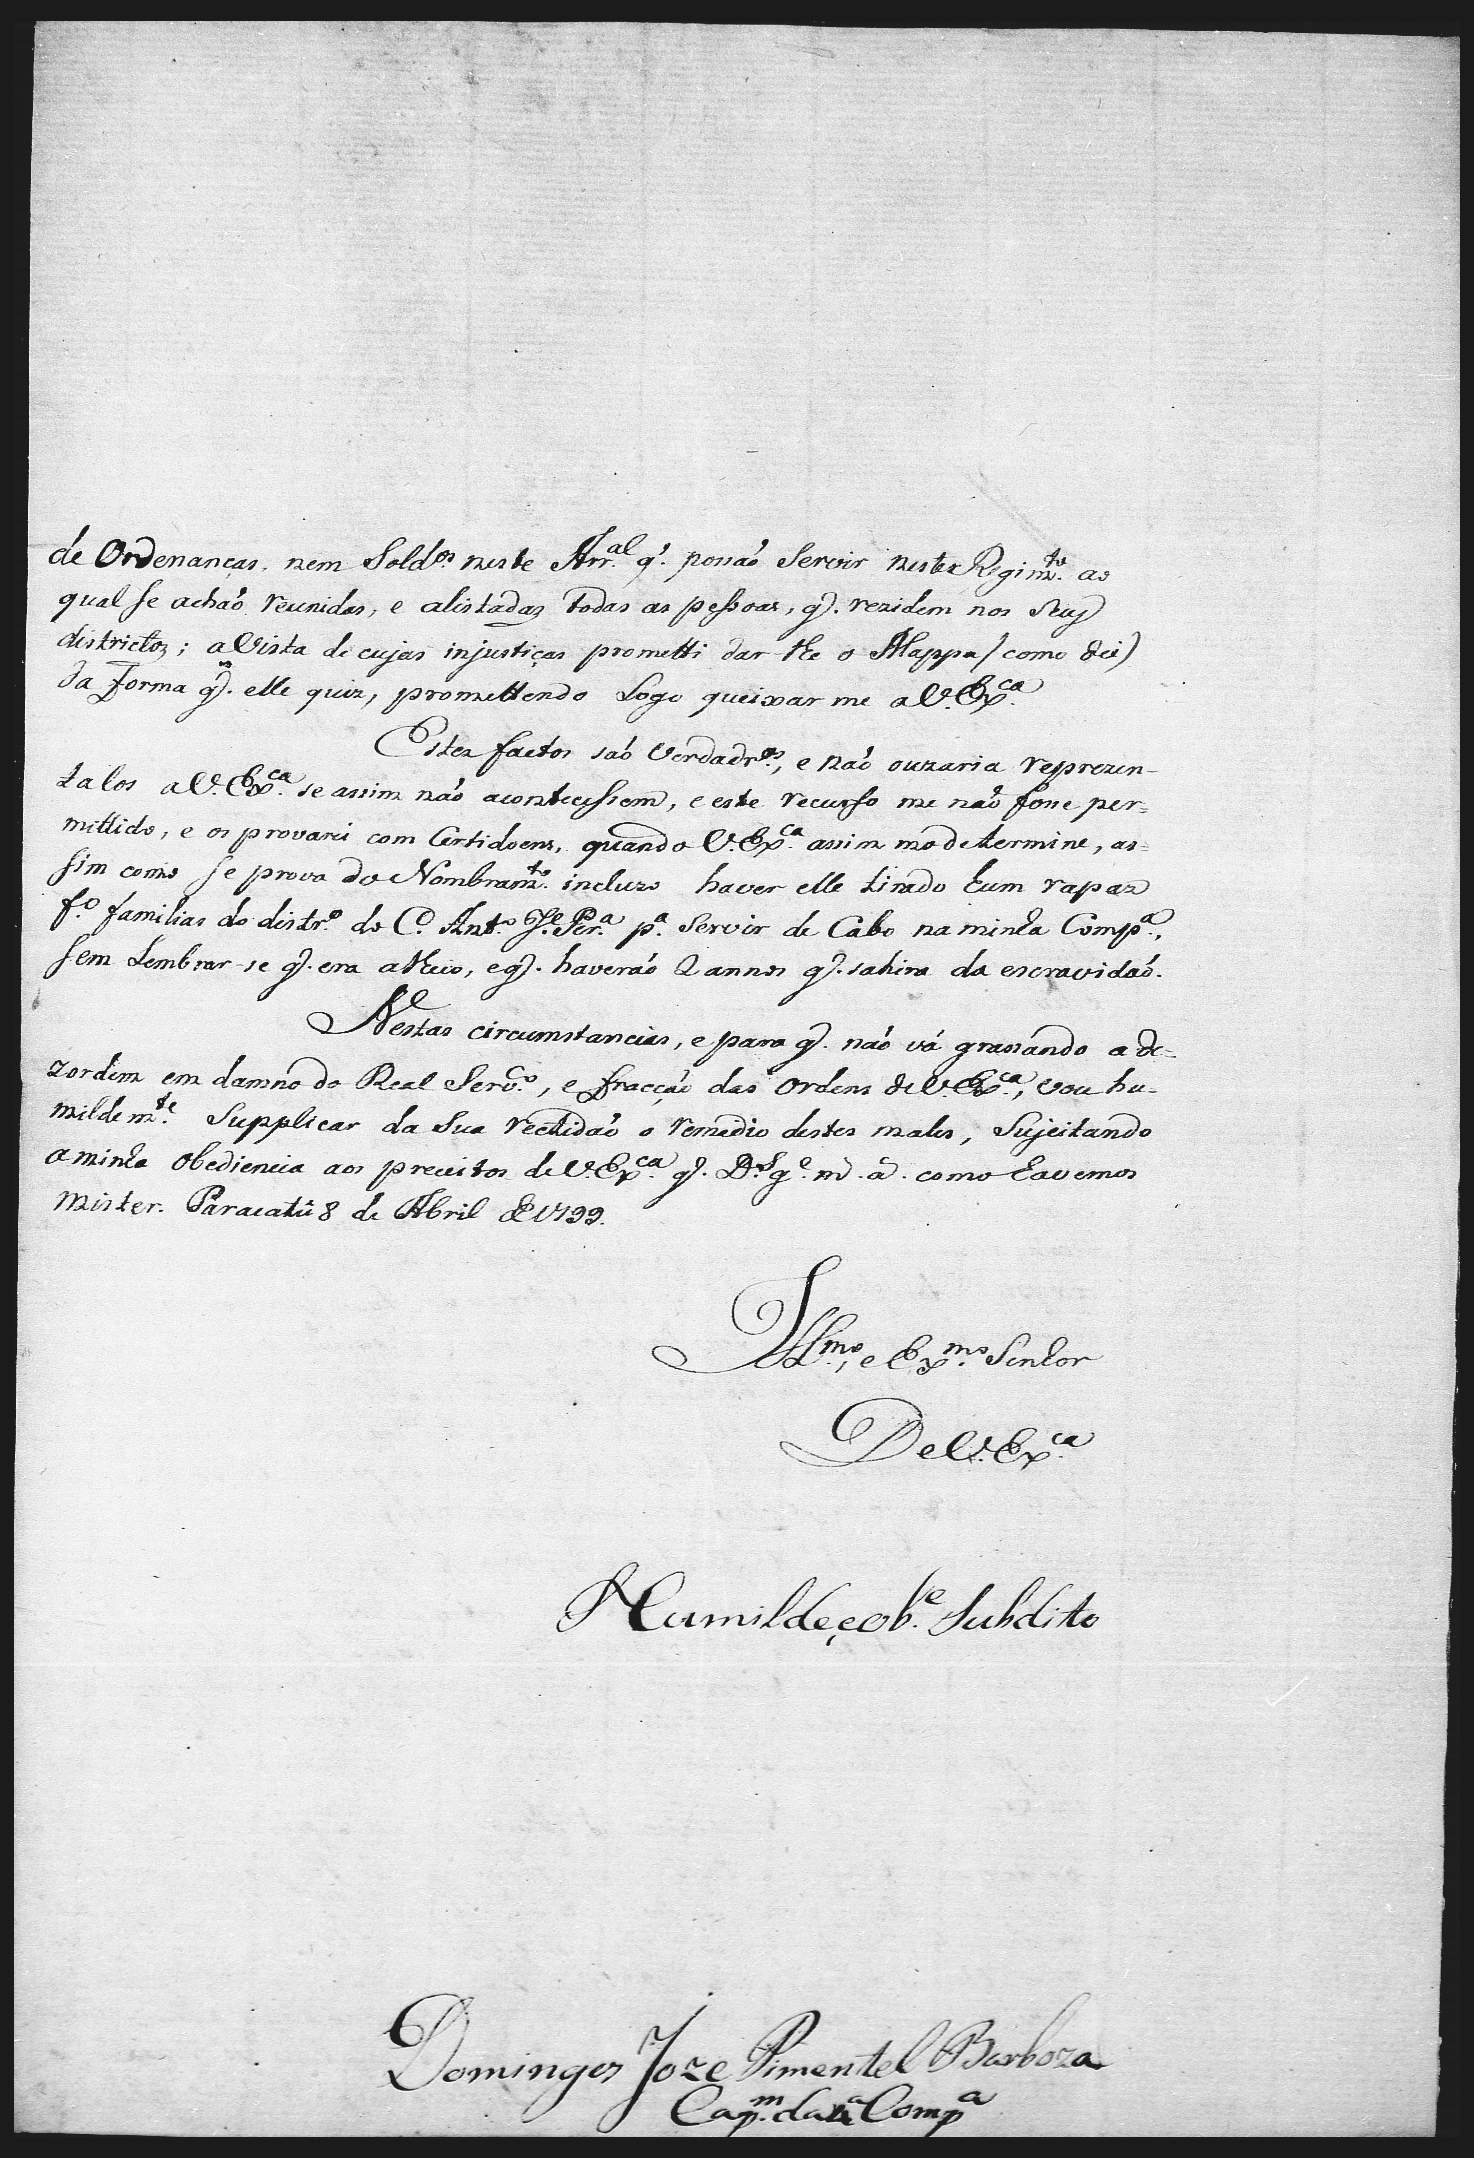 de Ordenanças, nem Sold.os neste Arr.al q'. possaõ servir nestes Regim.to ao
qual se achaõ reunidas, e alistadas todas as pessoas, q'. rezidem nos seus
districtos; a vista de cujas injustiças prometti dar-lhe o Mappa (como dei)
da forma q'. elle quiz, promettendo logo queixar me a V. Ex.ca
Estes factos saõ verdadr.os, e naõ ouzaria reprezen-
talos a V. Ex.ca se assim naõ acontecessem, e este recurso me naõ fosse per-
mittido, e os provarei com Certidoens, quando V. Ex.ca assim mo determine, as-
sim como se prova do Nombram.to incluzo haver elle tirado hum rapaz
f.o familias do distr.o do C.o Ant.o J.e Per.a p.a servir de Cabo na minha Comp.a,
sem lembrar-se q'. era alheio, e q'. haveraõ 2 annos q'. sahira da escravidaõ.
Nestas circumstancias, e para q'. naõ vá grassando a de-
zordem em damno do Real Serv.co, e fracçaõ das Ordens de V. Ex.ca, vou hu-
mildem.te supplicar da sua rectidaõ o remedio destes males, sujeitando
a minha obediencia aos preceitos de V. Ex.ca q'. D.s g.e m. a. como havemos
mister. Paracatú 8 de Abril de 1799.
Ill.mo, e Ex.mo Senhor
De V. Ex.ca
Humilde, e Ob.e Subdito
Domingos Joze Pimentel Barboza
Cap.m da Comp.a